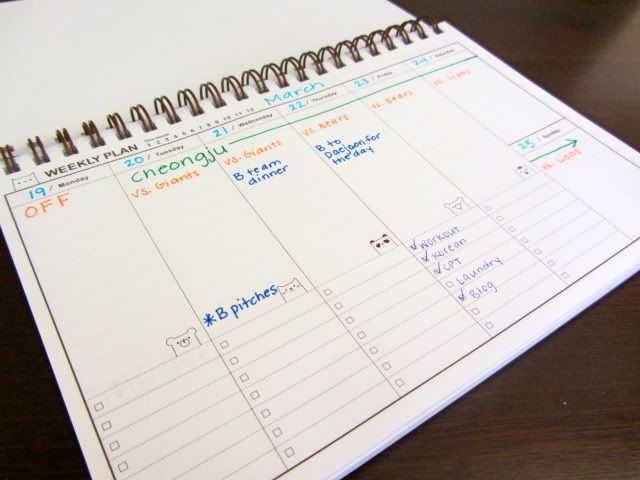 March
WEEKLY PLAN
1 2 3 4 5 6 7 8 9 10 11 12
19 / Monday
OFF
20 / Tuesday
Cheongju
vs. Giants
*B pitches
21 / Wednesday
vs. Giants
B team
dinner
22 / Thursday
vs. Bears
B to
Daejeon for
the day
23 / Friday
vs. Bears
workout
Korean
CPT
Laundry
Blog
24 / Saturday
vs. Lions
25 / Sunday
vs. Lions